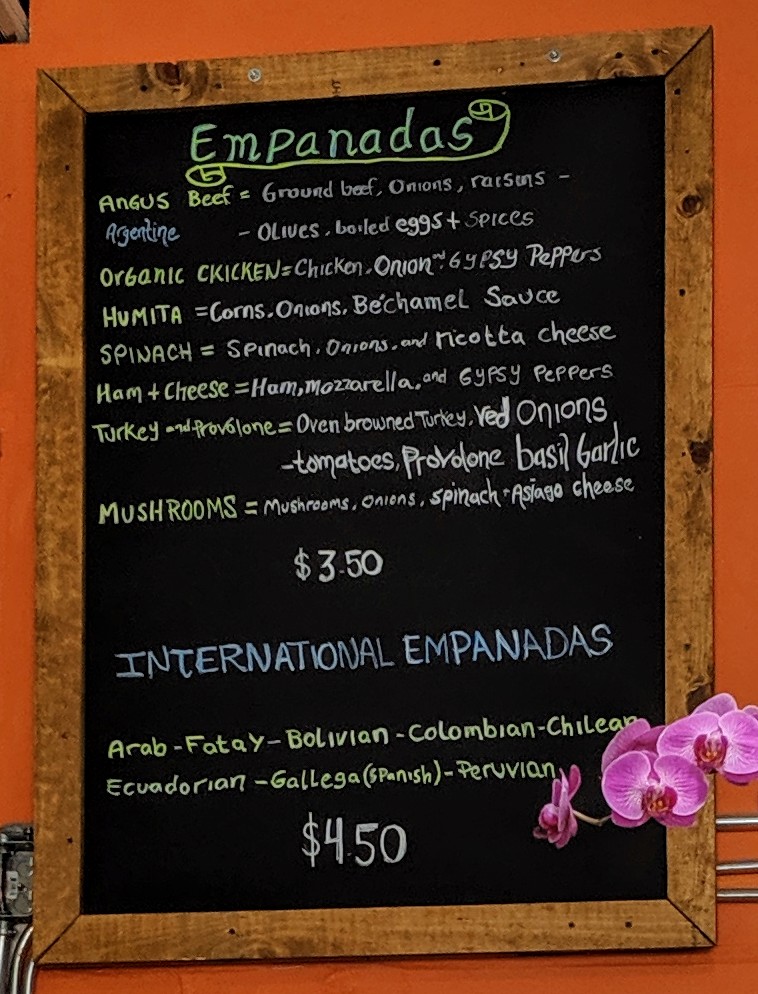 Empanadas
Angus Beef = Ground beef, Onions, raisins -
Argentine - OLIVES, boiled eggs + SPICES
Organic CKICKEN = Chicken, Onion and GYPSY Peppers
HUMITA = Corns, Onions, Béchamel Sauce
SPINACH = Spinach, Onions, and ricotta cheese
Ham + Cheese = Ham, mozzarella, and GYPSY Peppers
Turkey and Provolone = Oven browned Turkey, red Onions
- tomatoes, Provolone basil Garlic
MUSHROOMS = Mushrooms, Onions, Spinach + Asiago cheese
$3.50
INTERNATIONAL EMPANADAS
Arab - Fatay - Bolivian - Colombian - Chilean
Ecuadorian - Gallega (Spanish) - Peruvian
$4.50